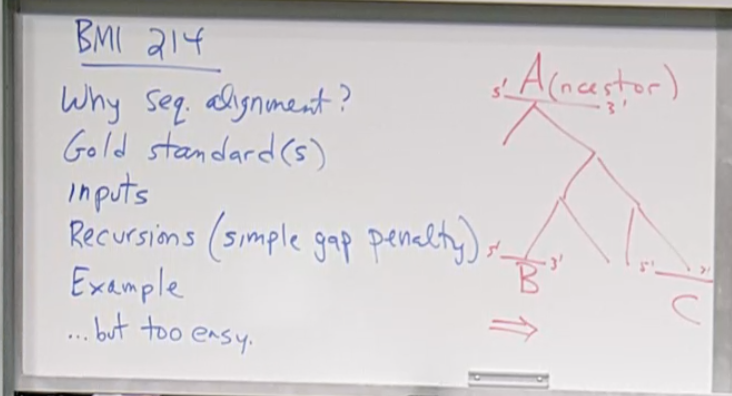 BMI 214
Why seq. alignment?
Gold standard(s)
Inputs
Recursions (simple gap penalty)
Example
...but too easy.
5' A(ncestor) 3'
5' B 3'
5' C 3'
⇒